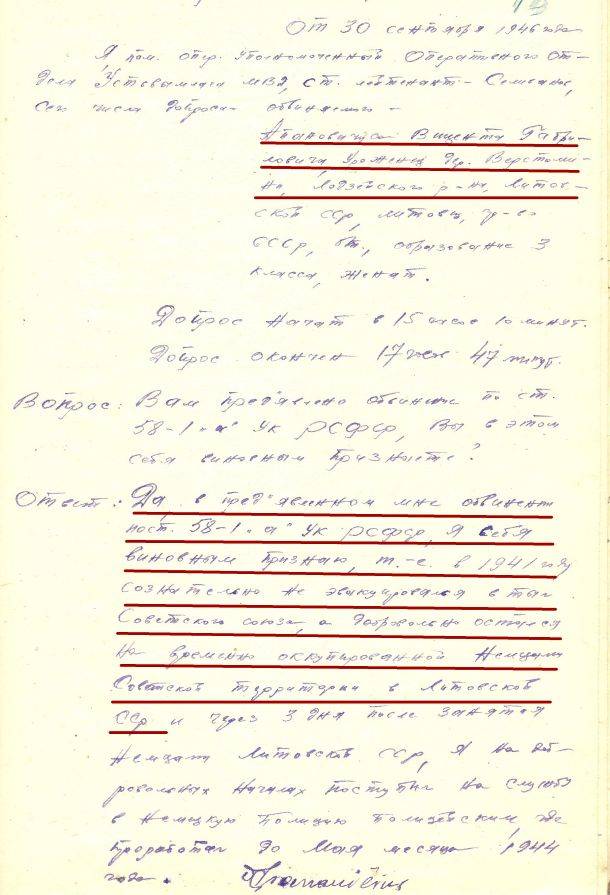 От 30 сентября 1946 года
Я, пом. опер. уполномоченный Оперативного От-
дела Устьвымлага МВД, ст. лейтенант -
сего числа допросил обвиняемого -
Винцента Габри-
ловича, уроженец дер.
р-на, Литов-
ской ССР, литовец, гр-во
СССР, б/п, образование 3
класса, женат.
Допрос начат в 15 часов 10 минут.
Допрос окончен 17 час 47 минут.
Вопрос: Вам пред'явлено обвинение по ст.
58-1 "а" УК РСФСР, Вы в этом
себя виновным признаете?
Ответ: Да, в пред'явленном мне обвинении
по ст. 58-1 "а" УК РСФСР, я себя
виновным признаю, т.-е. в 1941 году
сознательно не эвакуировался в тыл
Советского союза, а добровольно остался
на временно оккупированной немцами
Советской территории в Литовской
ССР и через 3 дня после занятия
немцами Литовской ССР, я на доб-
ровольных началах поступил на службу
в немецкую полицию полицейским где
проработал до мая месяца 1944
года.